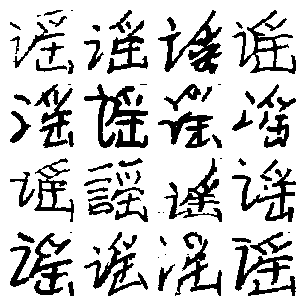 谣谣谣谣
谣谣谣谣
谣謡谣谣
谣谣谣谣